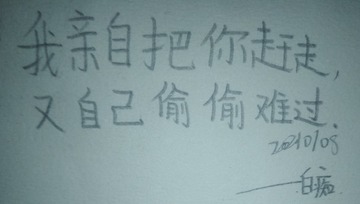 我亲自把你赶走,
又自己偷偷难过.
20210108
——白痴